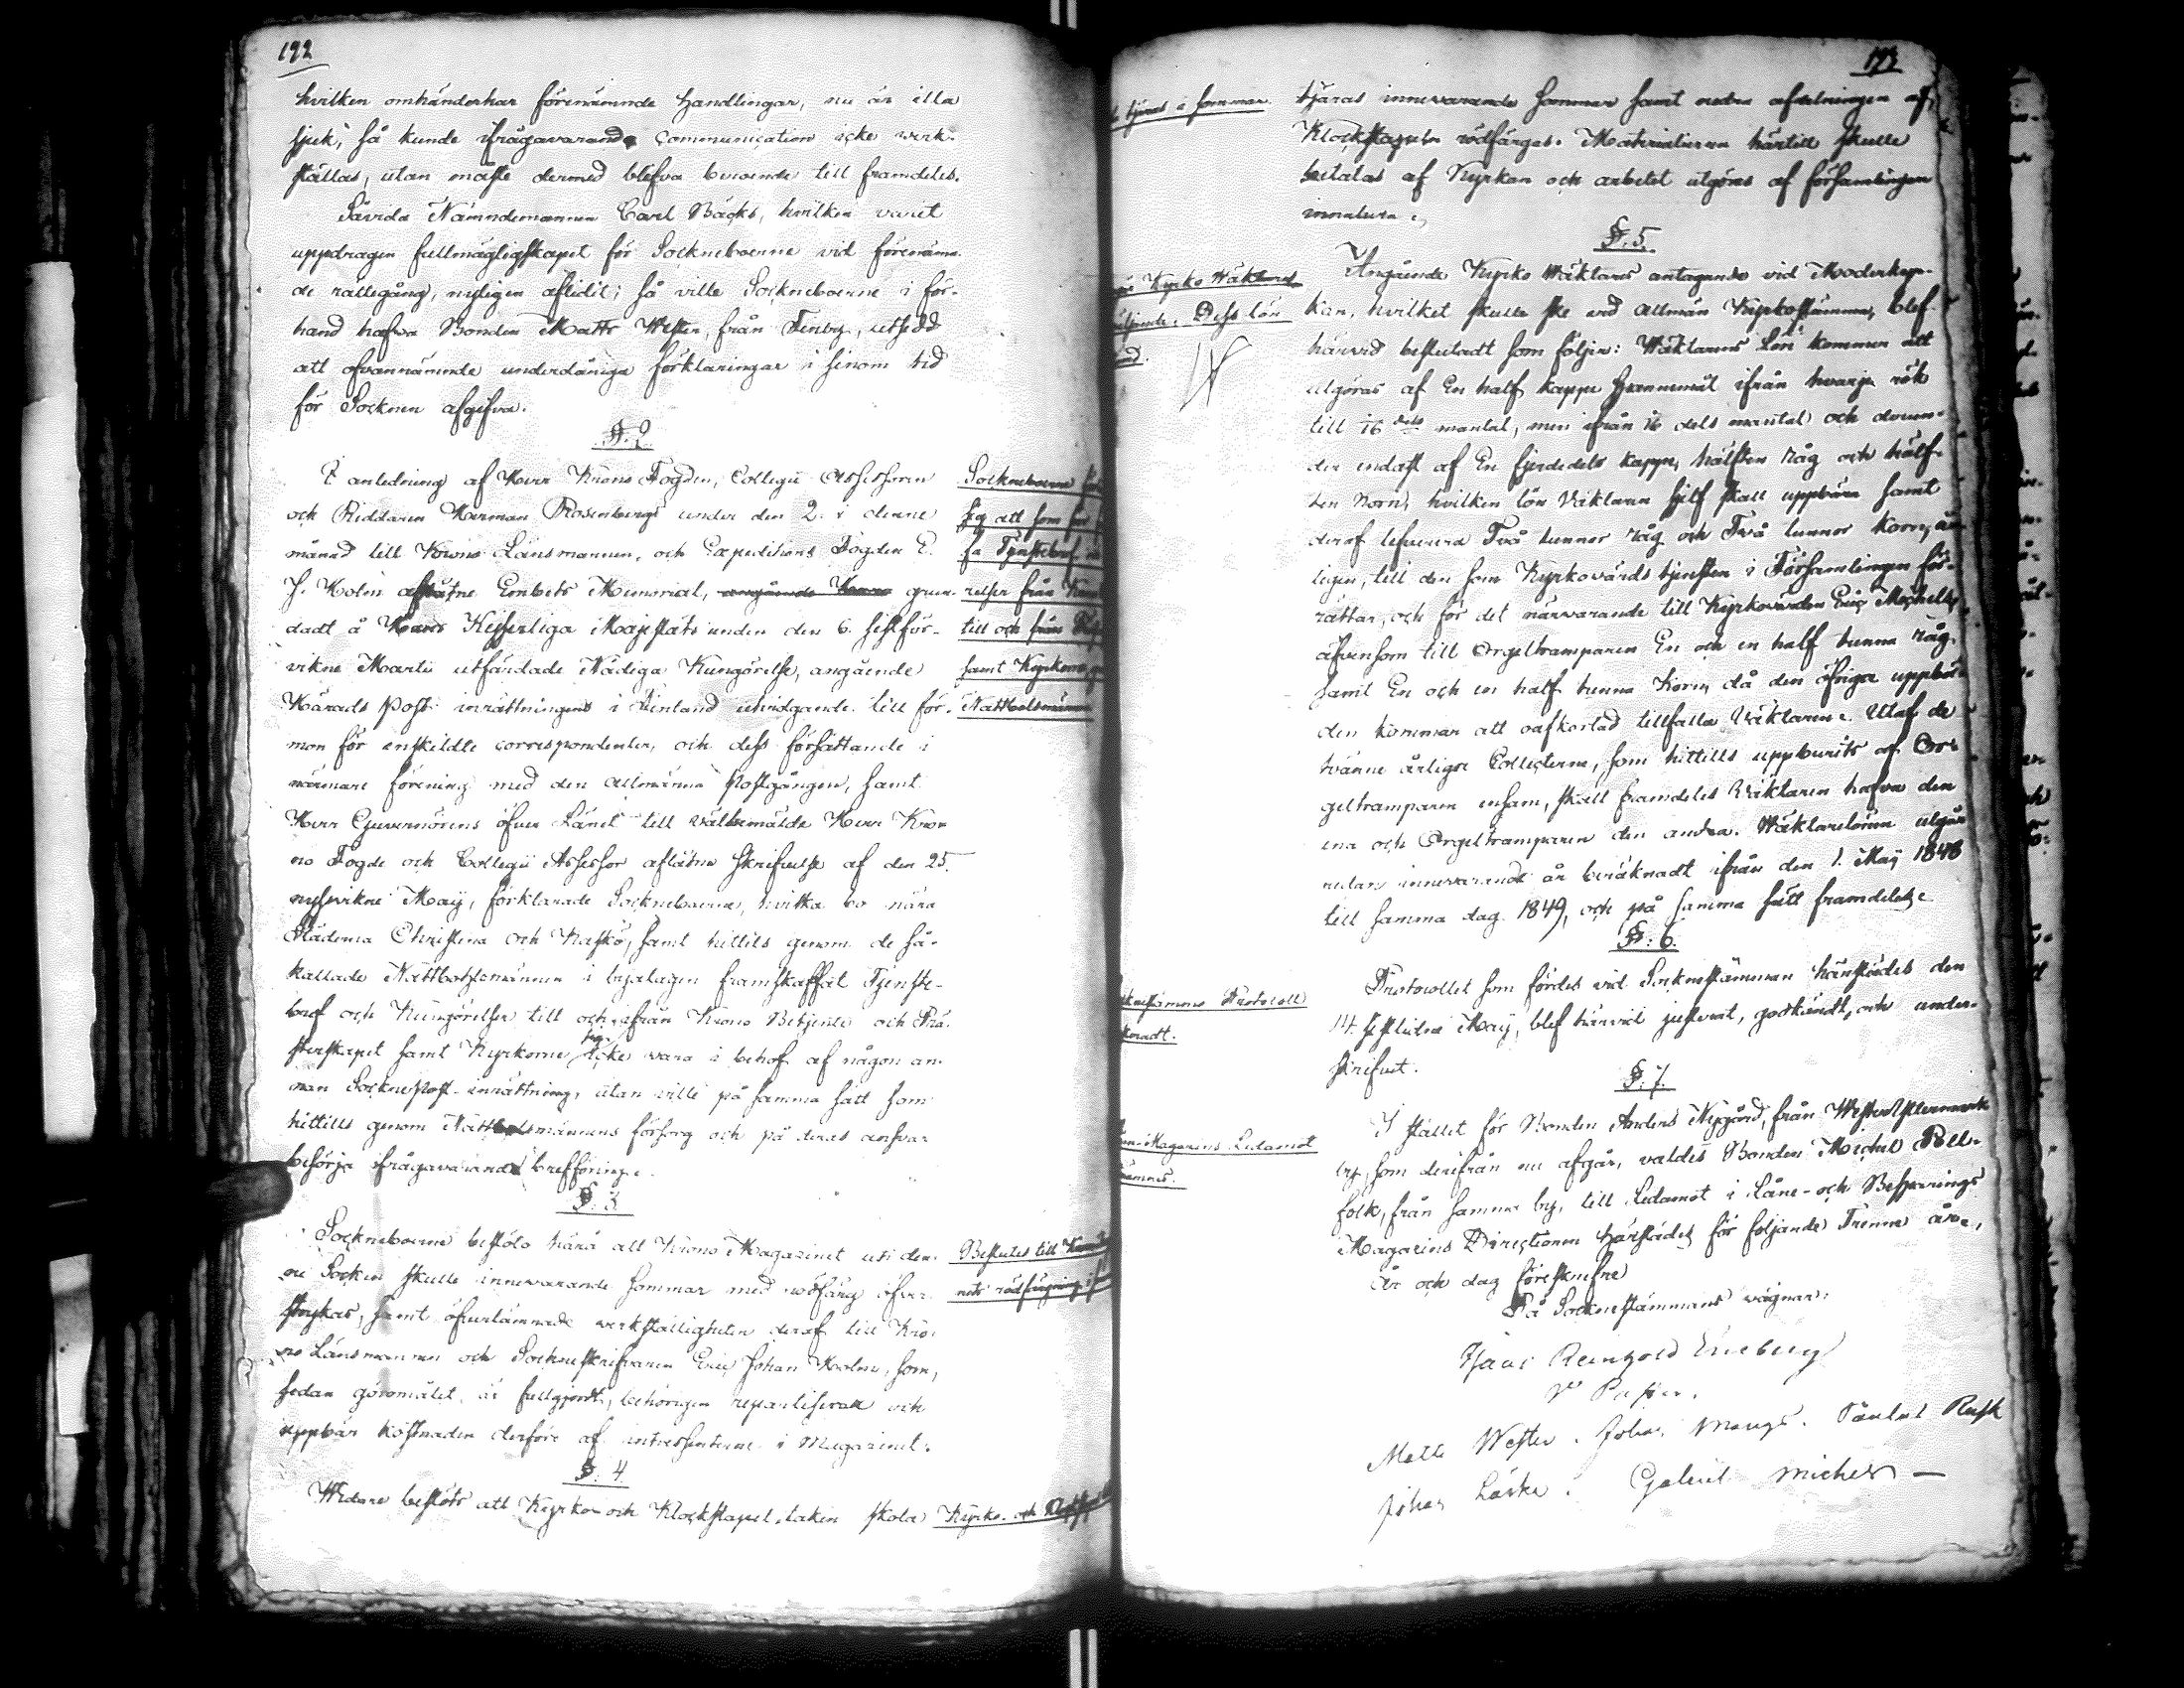 192
hvilken omhänderhar förenämnde Handlingar, nu är illa
sjuk; så kunde ifrågavarande Communication icke werk-
ställas, utan måste dermed blefva beroende till framdeles.
Såvida Nämndemannen Carl Bäcks, hvilken varit
uppdragen fullmägtigskapet för Sockneboerne vid förenämn-
de rättegång, nyligen aflidit; så ville Socknboerne i för-
hand hafva Bonden Matts Wester, från Finby, utsedd
att ofvannämnde underdåniga förklaringar i sinom tid
för Socknen afgifva.
§. 2.
I anledning af Herr Krono Fogden, Collegii Assessoren
och Riddaren Herman Rosenbergs under den 2. i denne
månad till Krono Länsmannen, och Expeditions Fogden E.
J. Holm aflåtne Embets Memorial, angående grun-
dadt å Hans Kejserliga Majestäts under den 6. sistför-
vikne Martii utfärdade Nådiga Kungörelse, angående
Härads Post-inrättningens i Finland utvidgande till för-
mon för enskildte correspondenter, och dess försättande i
närmare förening med den allmänna Postgången, samt
Herr Guvernörens öfver Länet till välbemälde Herr Kro-
no Fogde och Collegii Assessor aflåtne skrifvelse af den 25.
nyssvikne Maij, förklarade Socknboerne, hvilka bo nära
Städerna Christina och Kaskö, samt hittils genom de så-
kallade Nattbolsmännen i byalagen framskaffat Tjenste-
bref och Kungörelser till och ifrån Krono Betjente och Prä-
sterskapet samt Kyrkorne sig icke vara i behof af någon an-
nan Socknepost-inrättning, utan ville på samma sätt som
hittills genom Nattbolsmännens försorg och på deras ansvar
besörja ifrågavarande brefföring.
§. 3.
Socknboerne beslöto härå att Krono Magazinet uti den-
na Socken skulle innevarande sommar med rödfärg öfver
strykas, samt öfverlämnade verkställigheten deraf till Kro-
no Länsmannen och Sockneskrifvaren Eric Johan Holm, som,
sedan göromålet är fullgjordt, behörigen repartiserar och
uppbär kostnaden derföre af intressenterne i Magazinet.
§. 4.
Widare beslöts att Kyrko- och Klockstapel-taken skola
Socknboerne
sig att som
sa Tjenstebref
relser från
till och från
samt Kyrkorne
Nattbolsmännen
Beslutes till
nets rödfärgning i
Kyrko- och
173
tjäras i sommar.
tjäras innevarande sommar samt nedra afdelningen af
Klockstapeln rödfärgas. Materialierna härtill skulle
betalas af Kyrkan och arbetet utgöras af församlingen
in natura.
§. 5.
Kyrko Wäktares
Dess lön
Angående Kyrko Wäktares antagande vid Moderkyr-
kan, hvilket skulle ske vid Allmän Kyrkostämma, blef
härvid beslutadt som följer: Wäktarens Lön kommer att
utgöras af En half kappe Spannemål ifrån hvarje rök
till 16 dels mantal, men ifrån 16 dels mantal och derun-
der endast af En fjerdedels kappe, hälften råg och hälf-
ten korn, hvilken lön Väktaren sjelf skall uppbära samt
deraf lefverera Två tunnor råg och Två tunnor korn, år-
ligen, till den som Kyrkovärds tjensten i Församlingen för-
rättar, och för det närvarande till Kyrkovärden Eric
äfvensom till Orgeltramparen En och en half tunna råg
samt En och en half tunna korn, då den öfriga uppbör-
den kommer att oafkortad tillfalla Väktaren. Utaf de
tvänne årliga Collecterna, som hittills uppburits af Or-
geltramparen ensam, skall framdeles Väktaren hafva den
ena och Orgeltramparen den andra. Wäktarelönen utgår
redan innevarande år beräknadt ifrån den 1. Maij 1848
till samma dag 1849, och på samma sätt framdeles.
§. 6.
Protocoll
Protocollet som fördes vid Socknestämman härstädes den
14. sistledne Maij, blef härvid justerat, godkändt, och under-
skrifvet.
§. 7.
Magazins Ledamot
I stället för Bonden Anders Nygård, från
by, som derifrån nu afgår, valdes Bonden Michel Pell-
folk, från samma by, till Ledamot i Låne- och Besparings
Magazins Directionen härstädes för följande Trenne åre,
År och dag föreskrefne
På Socknestämmans vägnar:
Reinhold
v. Pastor.
Matts Wester. Johan Mangs.
Johan Gabriel Michels